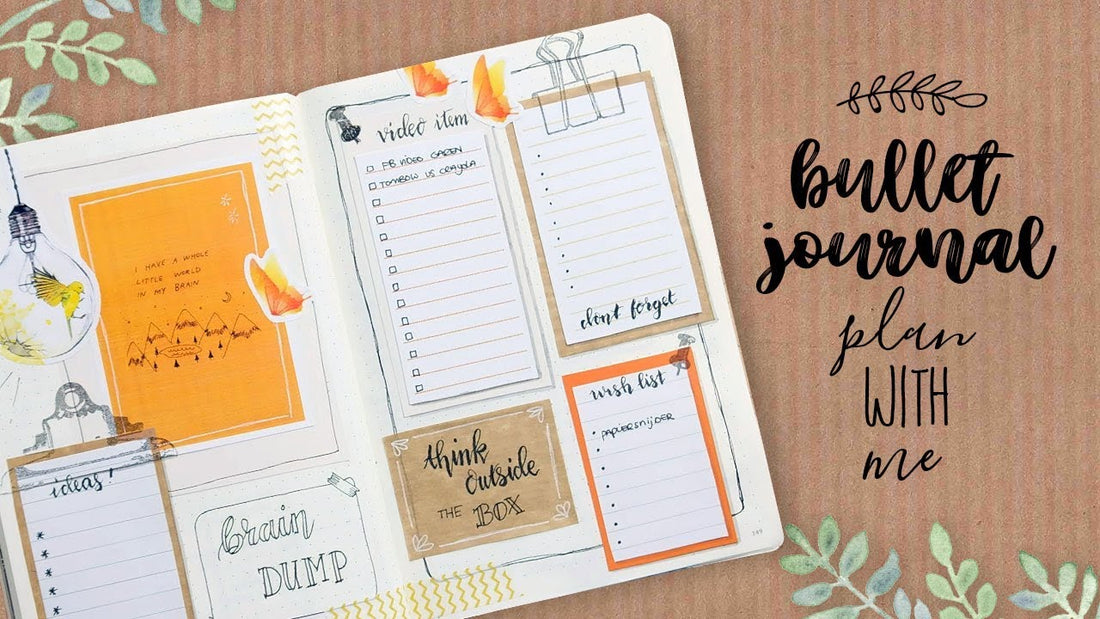 I HAVE A WHOLE
LITTLE WORLD
IN MY BRAIN
ideas!
brain
DUMP
video item
FB VIDEO GAREN
TOMBOW VS CRAYOLA
dont forget
think
outside
THE BOX
wish list
PAPIERSNIJDER
149
bullet
journal
plan
WITH
me